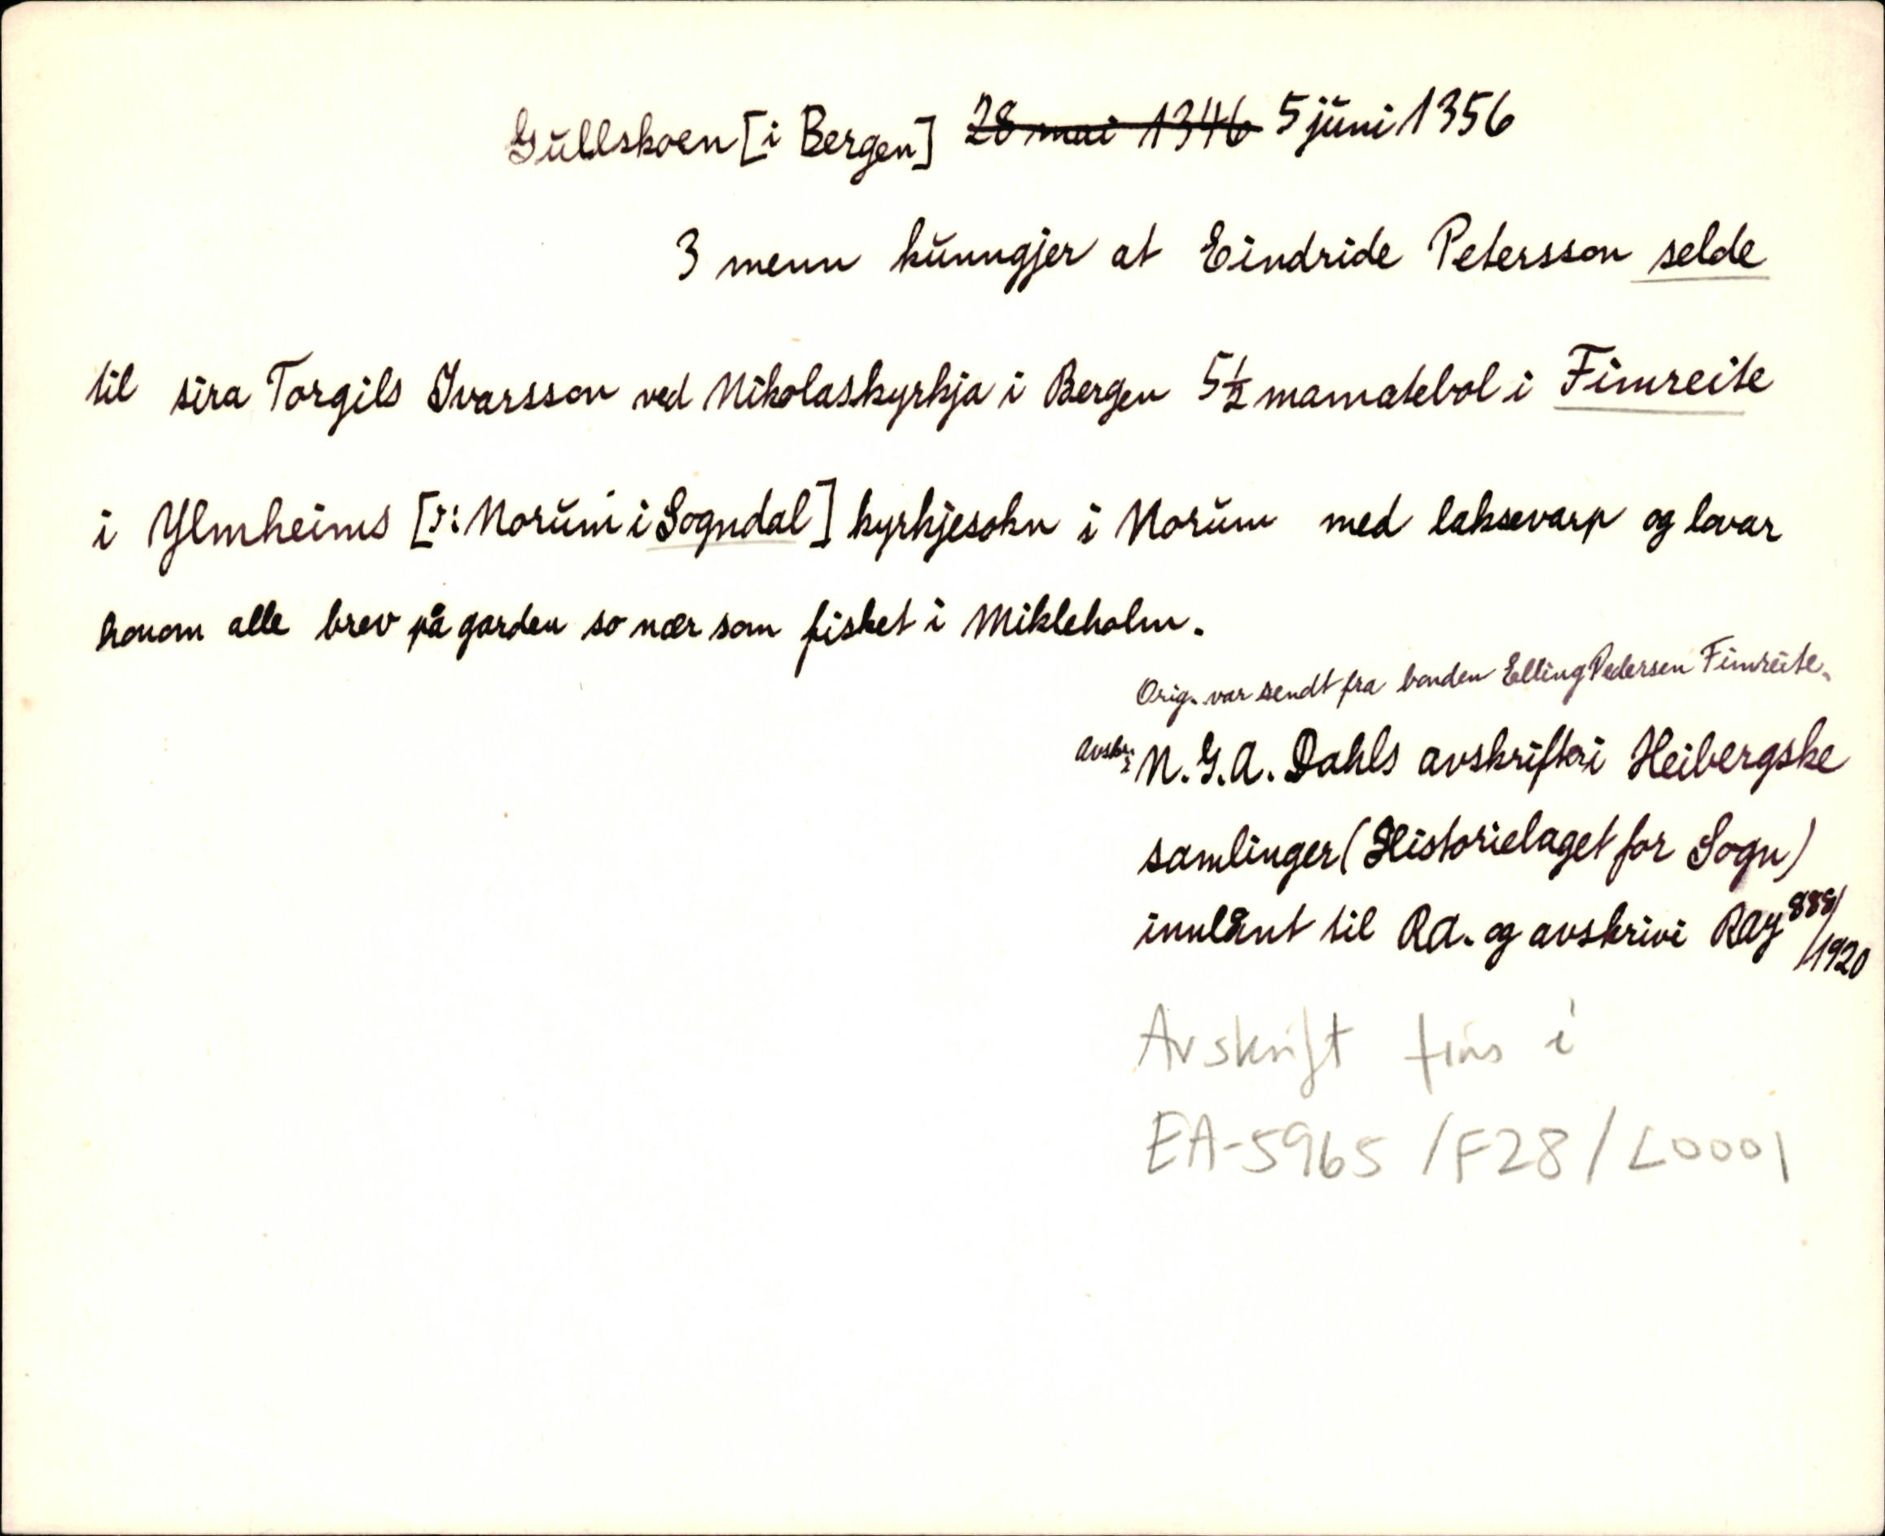 Gullskoen [i Bergen] 28 mai 1346 5 juni 1356
3 menn kunngjer at Eindride Petersson selde
til sira Torgils Ivarsson ved Nikolaskyrkja i Bergen 5½ mamatebol i Fimreite
i Ylmheims [ɔ: Norum i Sogndal] kyrkjesokn i Norum med laksevarp og lovar
honom alle brev på garden so nær som fisket i Mikleholm.
Orig. var sendt fra bonden Elling Pedersen Fimreite.
Avskr. i N. G. A. Dahls avskrifter i Heibergske
samlinger (Historielaget for Sogn)
innlånt til RA. og avskrivi RAy 888/1920
Avskrift fins i
EA-5965 /F28/L0001